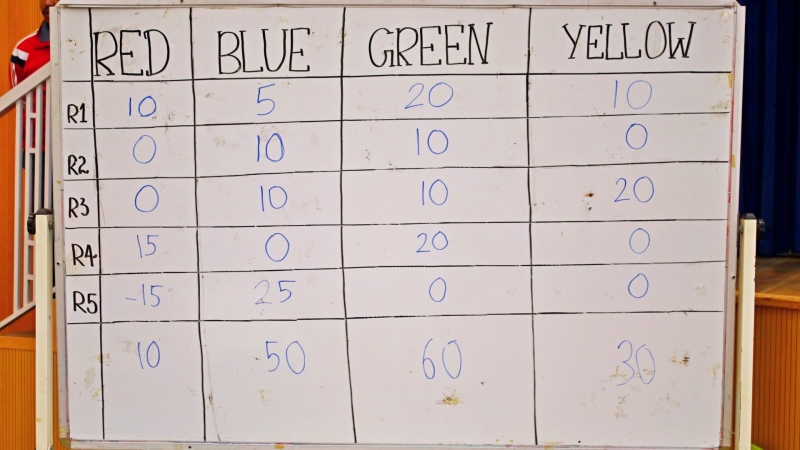 RED BLUE GREEN YELLOW
R1 10 5 20 10
R2 0 10 10 0
R3 0 10 10 20
R4 15 0 20 0
R5 -15 25 0 0
10 50 60 30